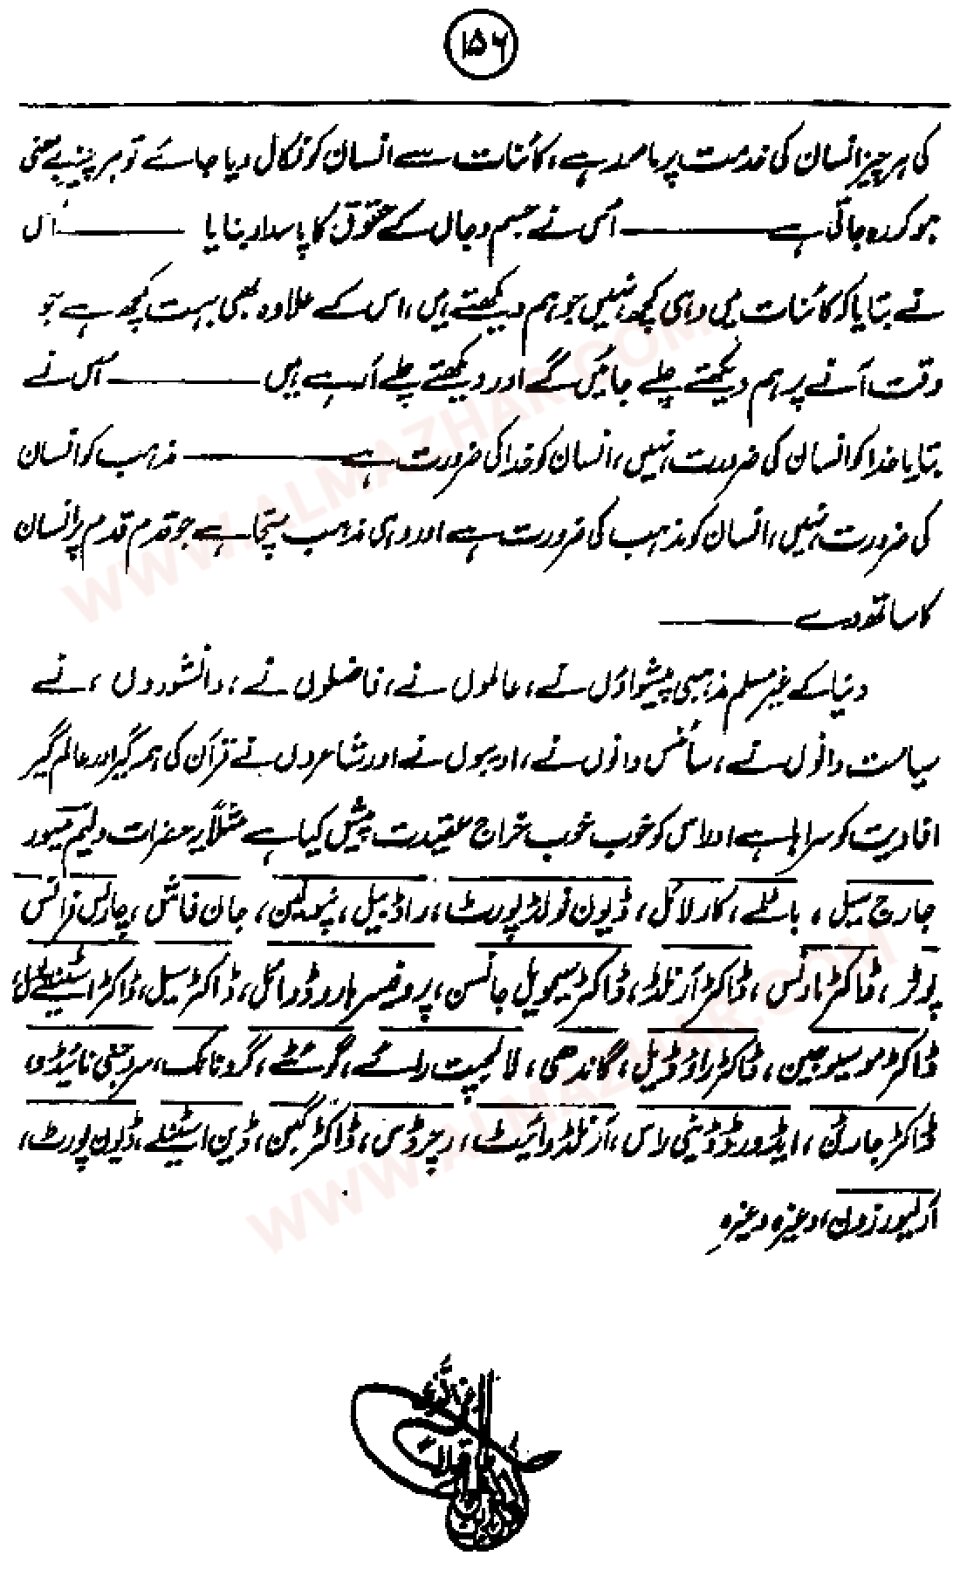 ۱۵۶
کی ہر چیز انسان کی خدمت پر مامور ہے، کائنات سے انسان کو نکال دیا جائے تو ہر چیز بے معنی
ہو کر رہ جاتی ہے ——— اُس نے جسم و جاں کے حقوق کا پاسدار بنایا ——— اُس
نے بتایا کہ کائنات میں وہی کچھ نہیں جو ہم دیکھتے ہیں، اس کے علاوہ بھی بہت کچھ ہے جو
وقت آنے پر ہم دیکھتے چلے جائیں گے اور دیکھتے چلے آرہے ہیں ——— اُس نے
بتایا خدا کو انسان کی ضرورت نہیں، انسان کو خدا کی ضرورت ہے ——— مذہب کو انسان
کی ضرورت نہیں، انسان کو مذہب کی ضرورت ہے اور وہی مذہب سچا ہے جو قدم قدم پر انسان
کا ساتھ دے ———
دنیا کے غیر مسلم مذہبی پیشواؤں نے، عالموں نے، فاضلوں نے، دانشوروں، نے
سیاست دانوں نے، سائنس دانوں نے، ادیبوں نے اور شاعروں نے قرآن کی ہمہ گیر اور عالم گیر
افادیت کو سراہا ہے اور اس کو خوب خوب خراج عقیدت پیش کیا ہے مثلاً یہ حضرات ولیم میور
جارج سیل، باٹلے، کارلائل، ڈیون فولڈ پورٹ، راڈیل، نپولین، جان فاش، چارلس فرانس
پوٹر، ڈاکٹر مارنس، ڈاکٹر آرنلڈ، ڈاکٹر سیمویل جانسن، پروفیسر ہارورڈ وائل، ڈاکٹر سیل، ڈاکٹر اسٹینلے لل،
ڈاکٹر موسیو جین، ڈاکٹر راؤڈیل، گاندھی، لالہ لجپت رائے، گوئٹے، گرونانک، سروجنی نائیڈی
ڈاکٹر جارٹن، ایڈورڈ ڈینی لاس، آرنلڈ وائیٹ، رچرڈس، ڈاکٹر گبن، ڈین اسٹنلے، ڈیون پورٹ،
آرلیور زون، وغیرہ وغیرہ
WWW.ALMAZHAR.COM
WWW.ALMAZHAR.COM